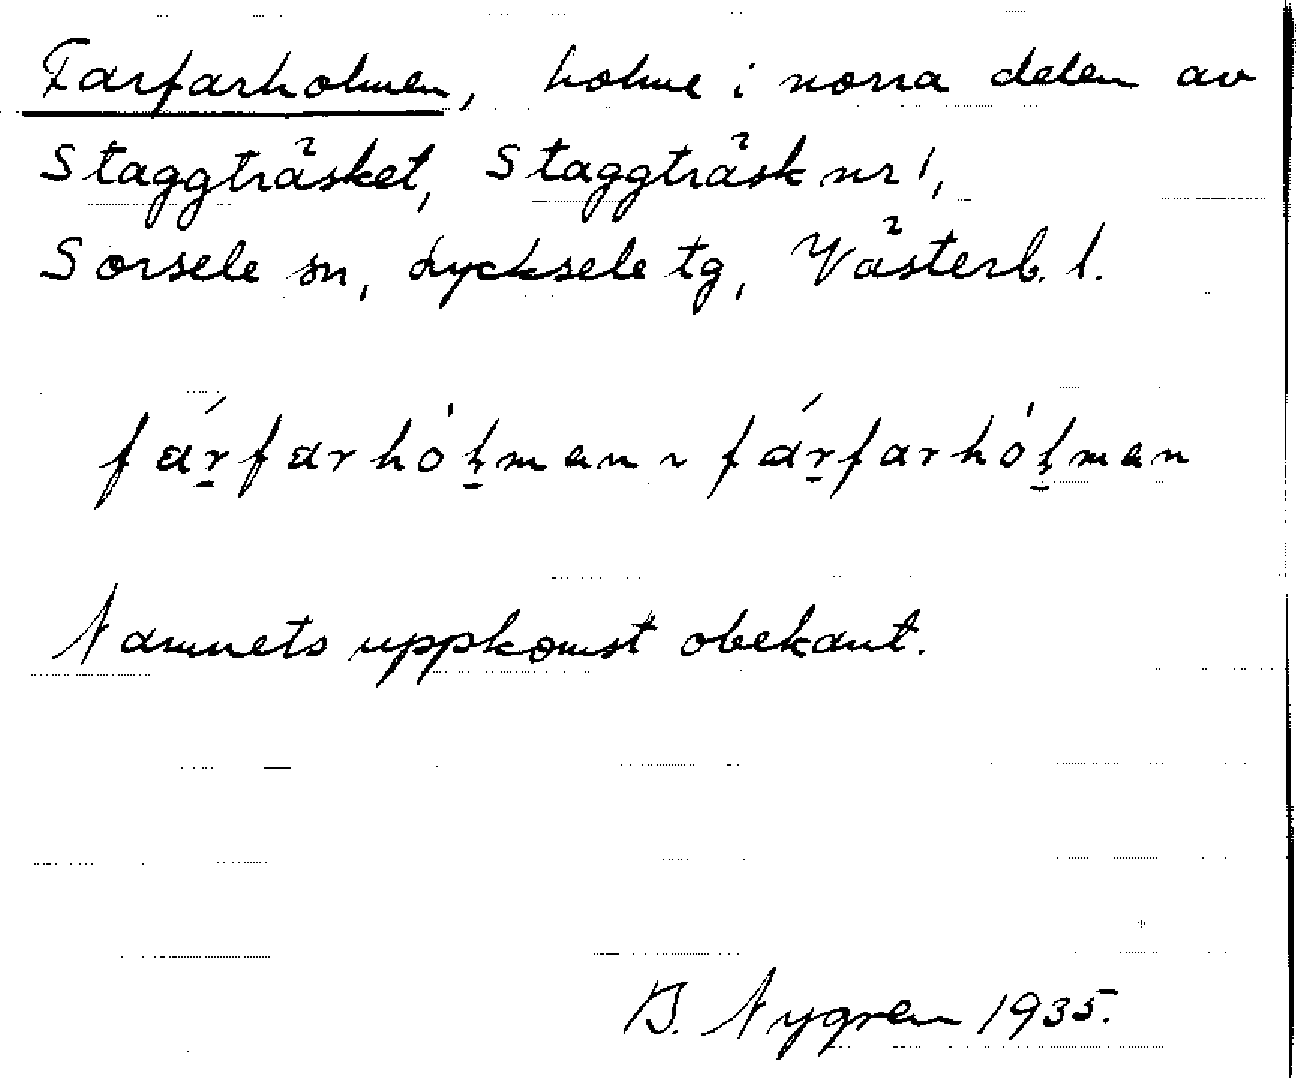 Farfarholmen, holme i norra delen av
Staggträsket, Staggträsk nr 1,
Sorsele sn, Lycksele tg, Västerb. l.
fárfarhólman ~ fárfarhólman
Namnets uppkomst obekant.
B. Nygren 1935.